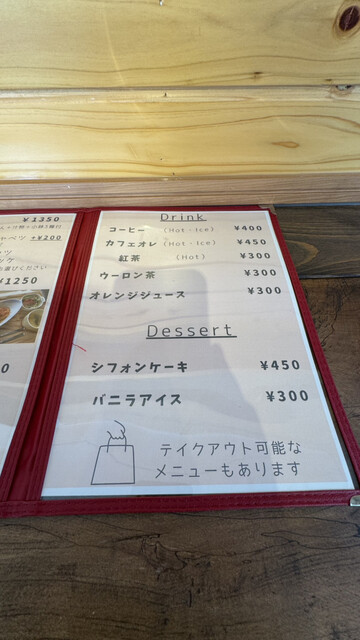 ¥1350
+¥200
お選びください
¥1250
Drink
コーヒー (Hot・Ice) ¥400
カフェオレ (Hot・Ice) ¥450
紅茶 (Hot) ¥300
ウーロン茶 ¥300
オレンジジュース ¥300
Dessert
シフォンケーキ ¥450
バニラアイス ¥300
テイクアウト可能な
メニューもあります